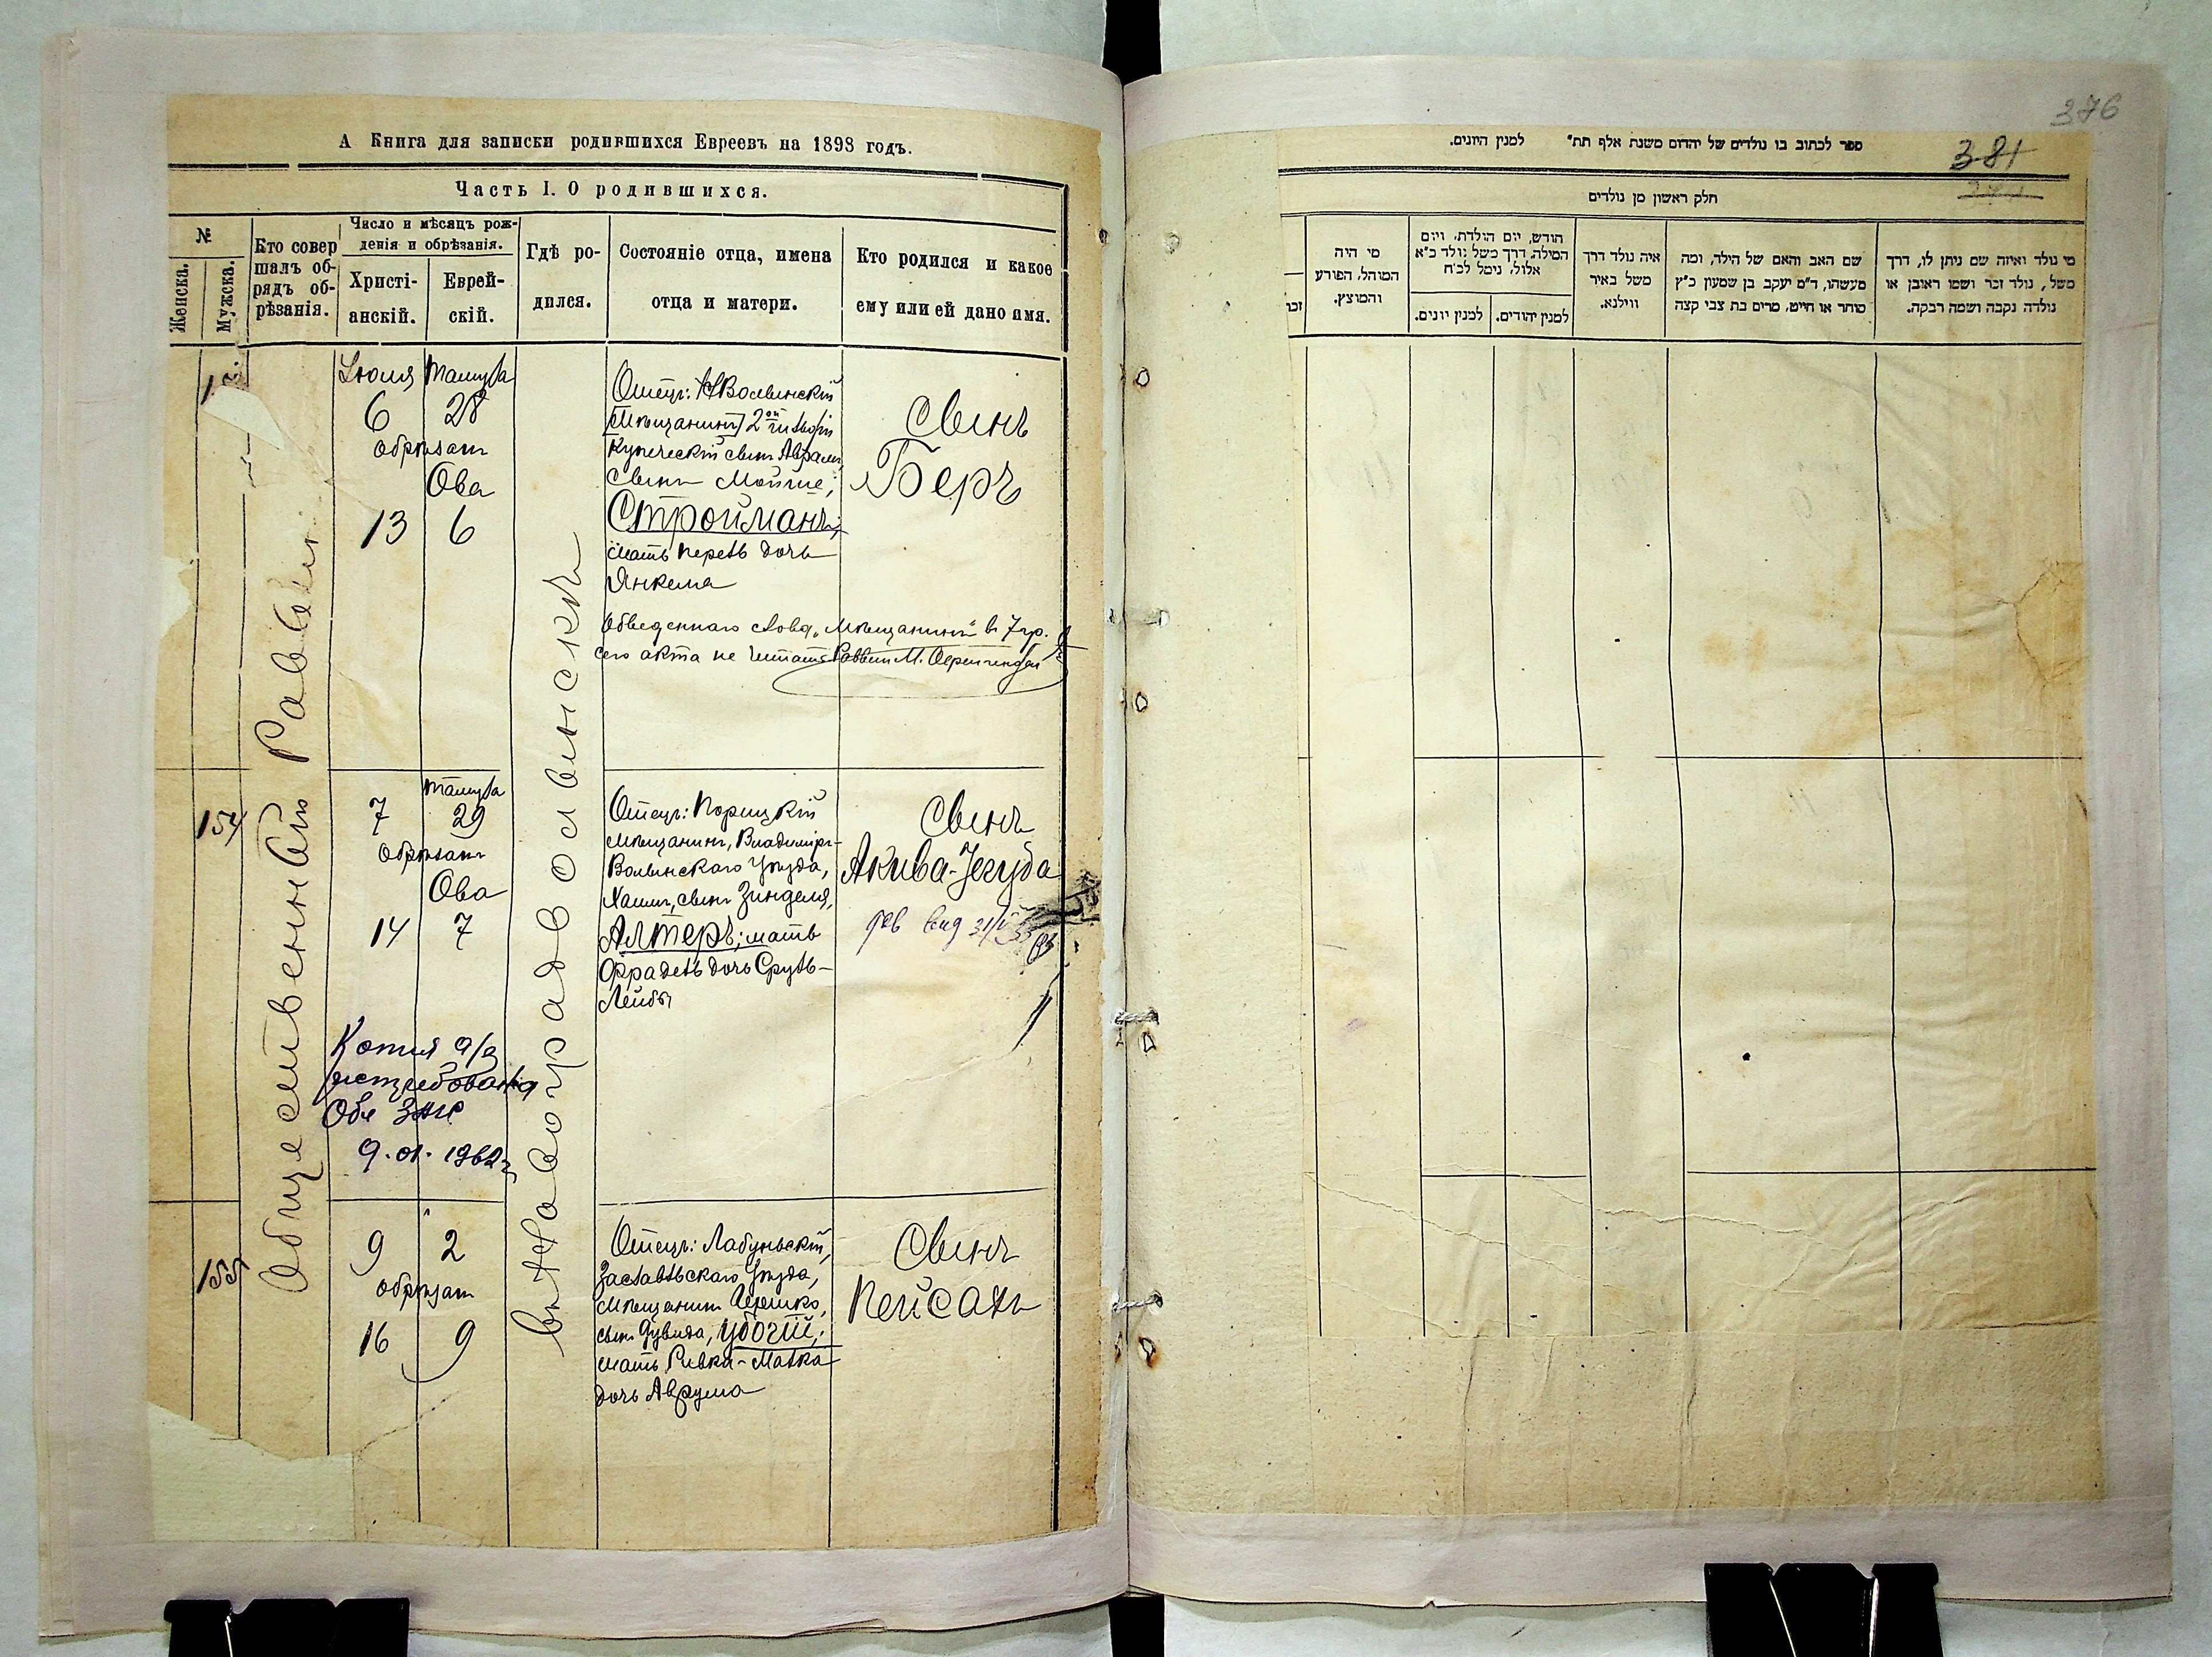 А Книга для записки родившихся Евреевъ на 1898 годъ.
Часть I. О родившихся.
№
Женска.
Мужска.
Кто совер
шалъ об-
рядъ об-
рѣзанія.
Число и мѣсяцъ рож-
денія и обрѣзанія.
Христі-
анскій.
Еврей-
скій.
Гдѣ ро-
дился.
Состояніе отца, имена
отца и матери.
Кто родился и какое
ему или ей дано имя.
Общественный Раввинъ
въ Новоградволынскѣ
Іюля Тамуза
6 28
обрѣзанъ
Ова
13 6
Отецъ: НВолынскій
[Мѣщанинъ] 2ой гильдіи
Купеческій сынъ Аврамъ,
сынъ Мойше,
Стройманъ;
мать Перель дочь
Янкеля
Обведеннаго слова „Мѣщанинъ" въ 7 гр.
сего акта не читать Раввинъ М.
Сынъ
Беръ
154
Тамуза
7 29
обрѣзанъ
Ова
14 7
Отецъ: Порицкій
мѣщанинъ, Владиміръ-
Волынскаго Уѣзда,
Хаимъ, сынъ Зинделя,
Алтеръ; мать
Фрадель дочь Сруль-
Лейбы
Сынъ
Акива-Іегуда
Копия а/з
истребована
Обл ЗАГС
9.01.1962 г
155
9 2
обрѣзанъ
16 9
Отецъ: Лабуньскій,
Заславльскаго Уѣзда,
мѣщанинъ Гершко,
сынъ Дувида, Убогій;
мать Ривка-Малка
дочь Аврума
Сынъ
Пейсахъ
376
381
ספר לכתוב בו נולדים של יהדום משנת אלף תת" למנין היונים.
חלק ראשון מן נולדים
מי נולד ואיזה שם ניתן לו, דרך
משל, נולד זכר ושמו ראובן או
נולדה נקבה ושמה רבקה.
שם האב והאם של הילד, ומה
מעשהו, ד"מ יעקב בן שמעון כ"ץ
סוחר או חייט, מרים בת צבי קצה
איה נולד דרך
משל באיר
ווילנא.
חודש, יום הולדת, ויום
המילה, דרך משל נולד כ"א
אלול, נימל לכ"ח
למנין יהודים.
למנין יונים.
מי היה
המוהל, הפורע
והמוצץ.
זכר